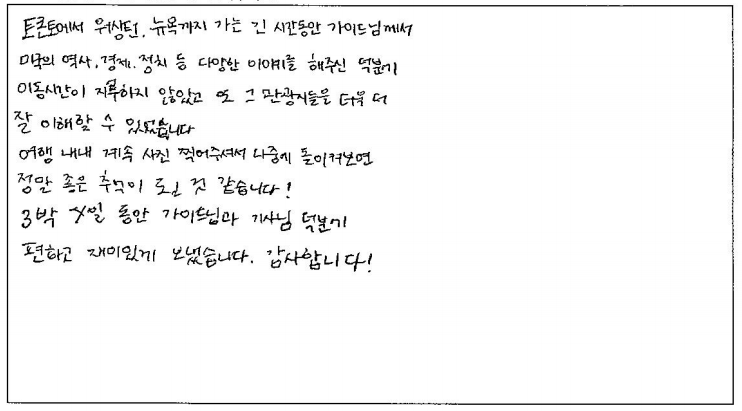 토론토에서 워싱턴, 뉴욕까지 가는 긴 시간동안 가이드님께서
미국의 역사, 경제, 정치 등 다양한 이야기를 해주신 덕분에
이동시간이 지루하지 않았고 또 그 관광지들을 더욱 더
잘 이해할 수 있었습니다
여행 내내 계속 사진 찍어주셔서 나중에 돌이켜보면
정말 좋은 추억이 될 것 같습니다!
3박 4일 동안 가이드님과 기사님 덕분에
편하고 재미있게 보냈습니다. 감사합니다!